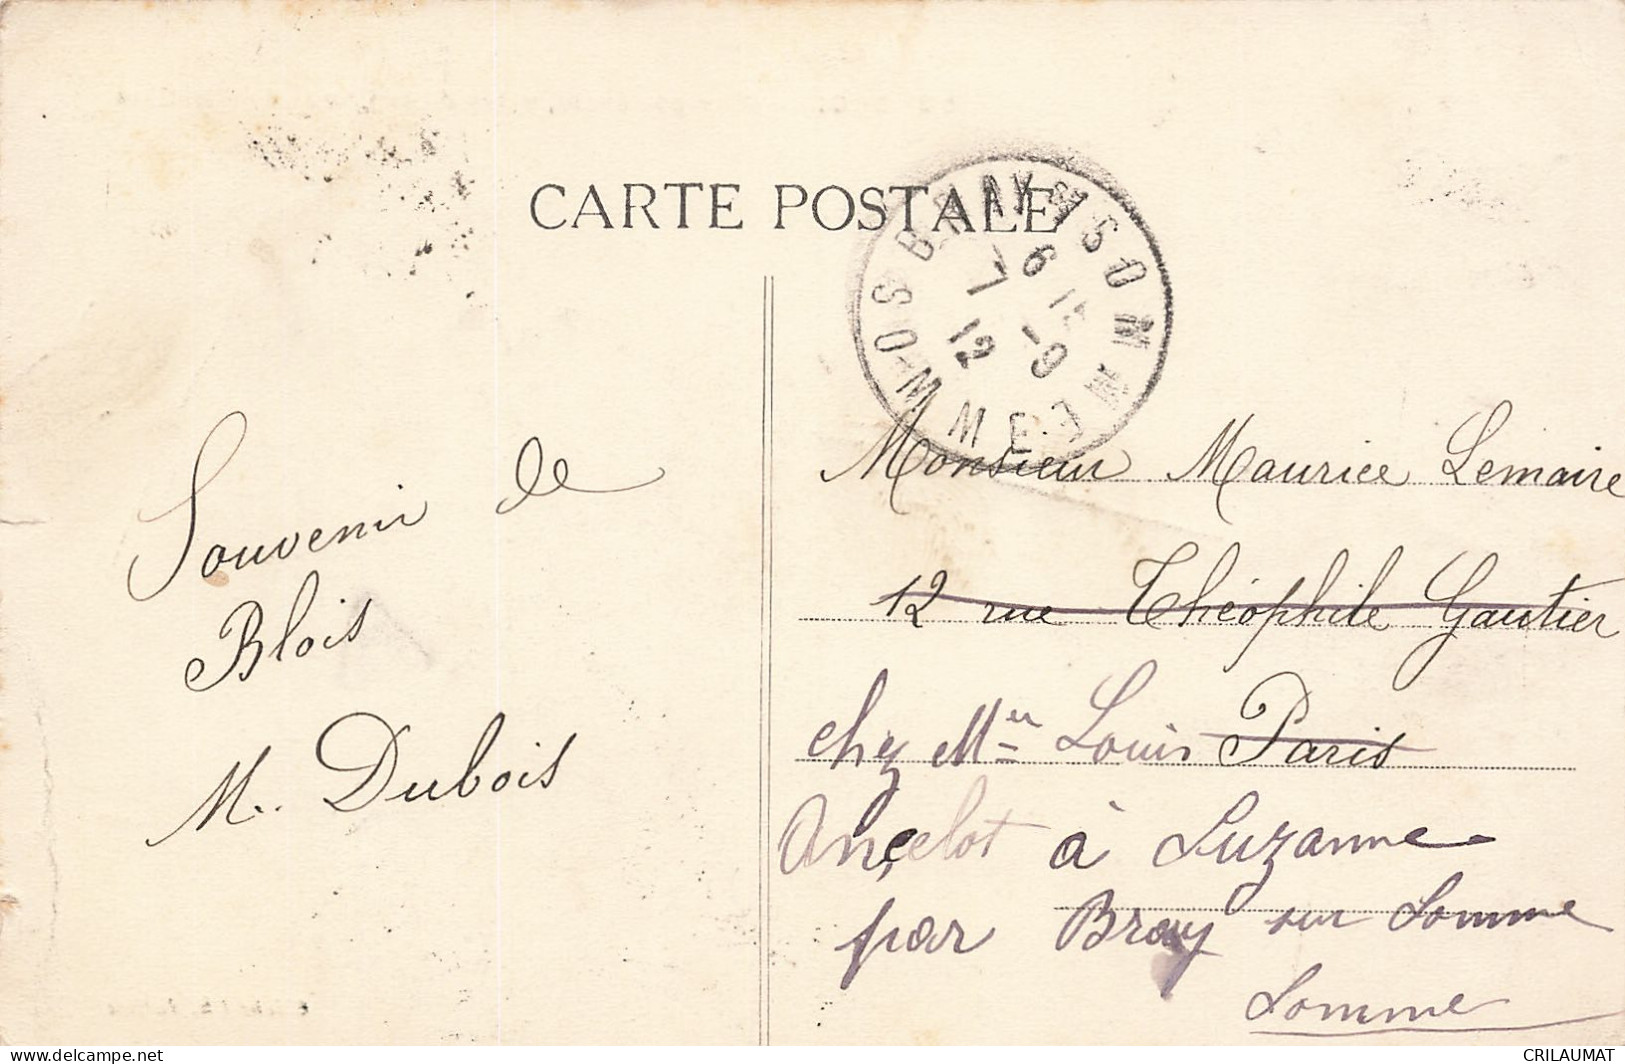 CARTE POSTALE
BRAY-S-SOMME
7-9
12
SOMME
Souvenir de
Blois
M. Dubois
Monsieur Maurice Lemaire
12 rue Théophile Gautier
Paris
chez Mr Louis
Ancelot à Suzanne
par Bray sur Somme
Somme
delcampe.net
CRILAUMAT